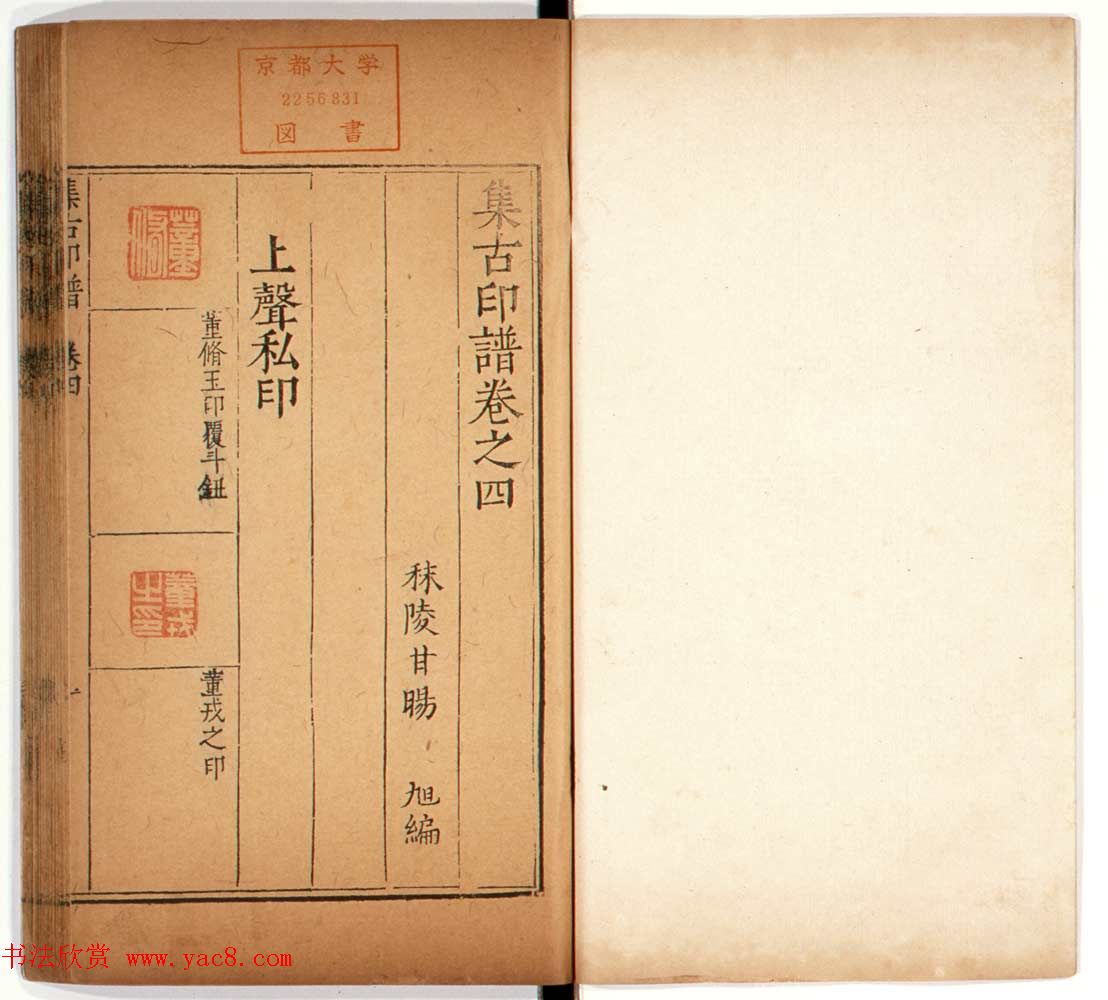 京都大学
2256831
図書
集古印譜卷之四
秣陵甘暘 旭編
上聲私印
董脩
董脩玉印覆斗鈕
董戎之印
董戎之印
集古印譜 卷四
一
书法欣赏 www.yac8.com